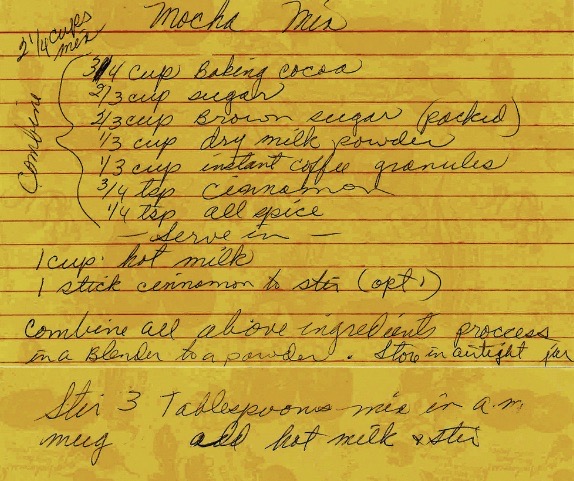 Mocha Mix
2 1/4 cups mix
Combine
3/4 cup Baking cocoa
2/3 cup sugar
2/3 cup Brown sugar (packed)
1/3 cup dry milk powder
1/3 cup instant coffee granules
3/4 tsp cinnamon
1/4 tsp all spice
— Serve in —
1 cup hot milk
1 stick cinnamon to stir (opt.)
Combine all above ingredients process
in a Blender to a powder. Store in airtight jar
Stir 3 Tablespoons mix in a.m.
mug add hot milk & stir